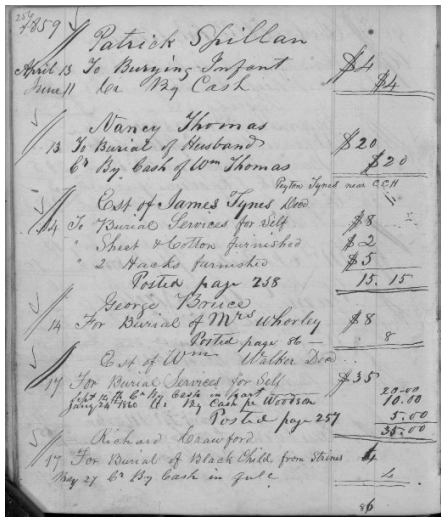 256
1859
Patrick Spillan
April 13 To Burying Infant $4
June 11 Cr By Cash $4
Nancy Thomas
13 To Burial of Husband $20
Cr By Cash of Wm Thomas $20
Peyton Tynes near C.C.H
Est of James Tynes Decd
14 To Burial Services for Self $8
" Sheet & Cotton furnished $2
" 2 Hacks furnished $5
Posted page 258 15.15
George Bruce
14 For Burial of Mrs Whorley $8
Posted page 86 — 8
Est of Wm Walker Decd
17 For Burial Services for Self $35
Sept 14th Cr By Cash in part 20.00
Jany 24th 1860 Cr By Cash pr Woodson 10.00
Posted page 257 5.00
35.00
Richard Crawford
17 For Burial of Black Child from Strines 4
May 27 Cr By Cash in full 4
86